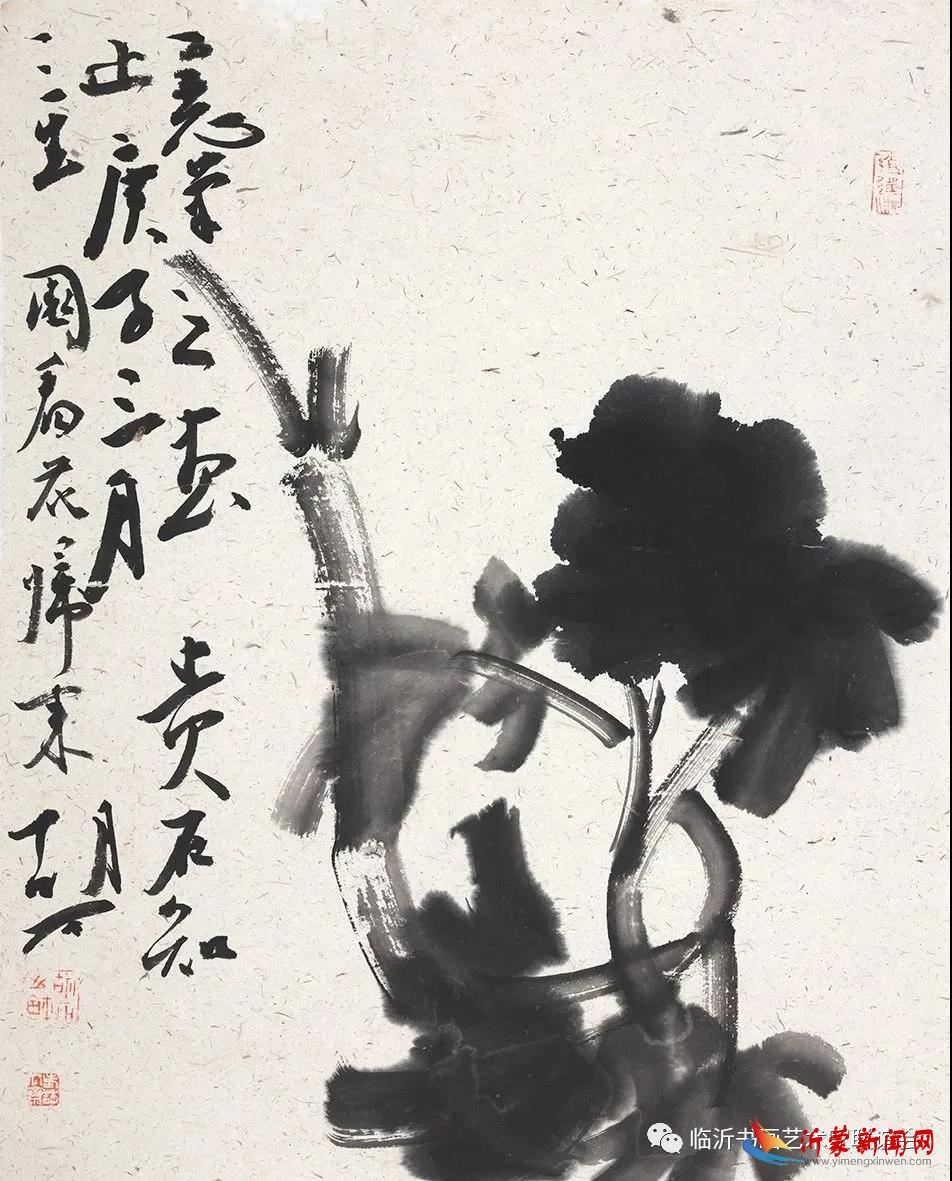 意笔之画贵在知
止庚子三月
園看花歸来
胡
临沂书画艺
沂蒙新闻网
www.yimengxinwen.com